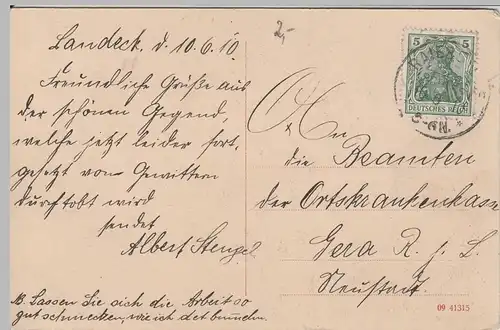 2,-
Landeck, d. 10.6.10
Freundliche Grüße aus
der schönen Gegend,
welche jetzt leider fort-
gesetzt von Gewittern
durchtobt wird
sendet
Albert Stengel
NB. Lassen Sie sich die Arbeit so
gut schmecken, wie ich det
5 5
DEUTSCHES REICH
5-6N.
An
die Beamten
der Ortskrankenkasse
Gera R. j. L.
Neustadt.
09 41315